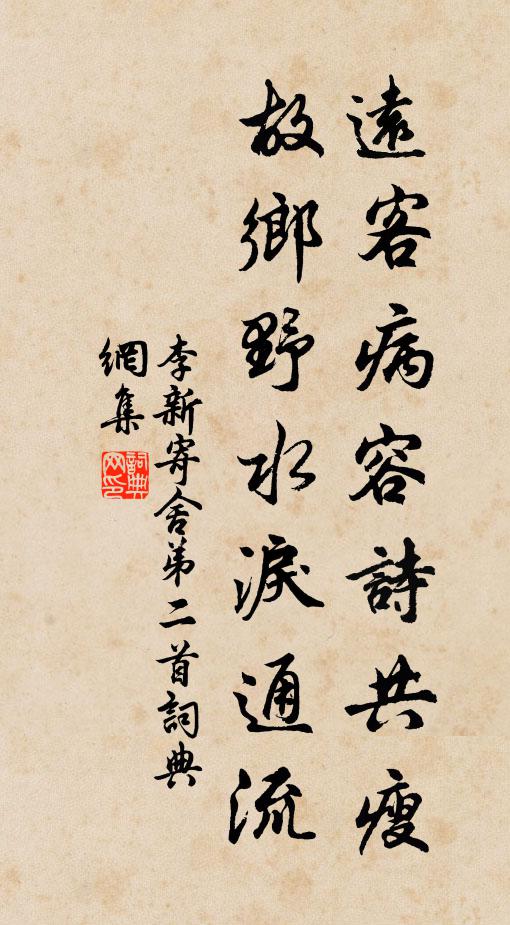 遠客病容詩共瘦
故鄉野水淚通流
李新寄舍弟二首詞典
網集
詞典
网印